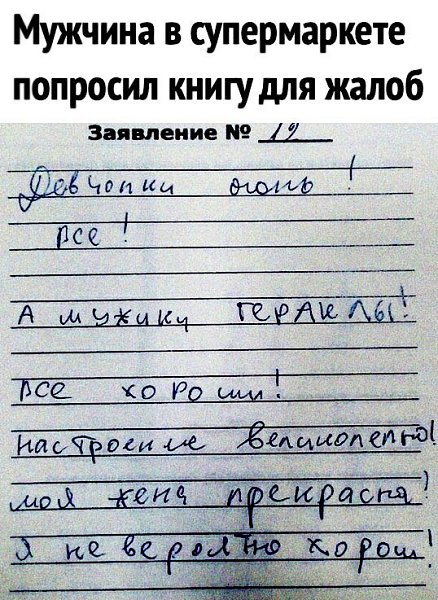 Мужчина в супермаркете
попросил книгу для жалоб
Заявление № 19
Девчонки огонь!
все!
А мужики ГЕРАКЛЫ!
все хороши!
настроение великолепно!
моя жена прекрасна!
Я не вероятно хорош!